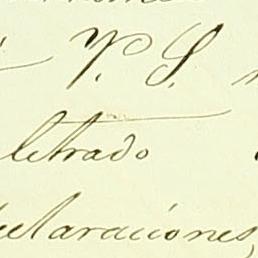 V. S.
letrado
declaraciones,